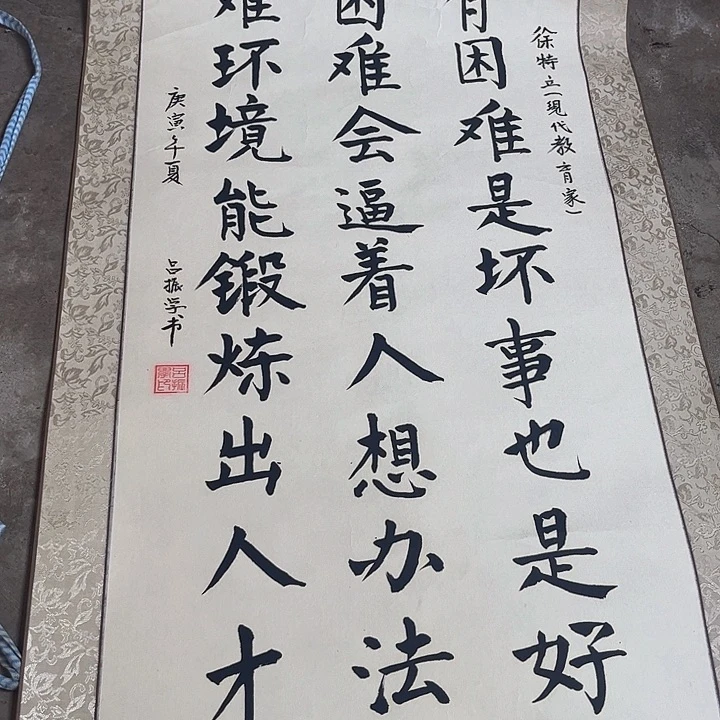 徐特立(現代教育家)
有困难是坏事也是好
困难会逼着人想办法
难环境能锻炼出人才
庚寅年夏
吕振学书